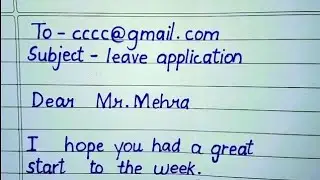 To - cccc@gmail.com
Subject - leave application
Dear Mr. Mehra
I hope you had a great
start to the week.